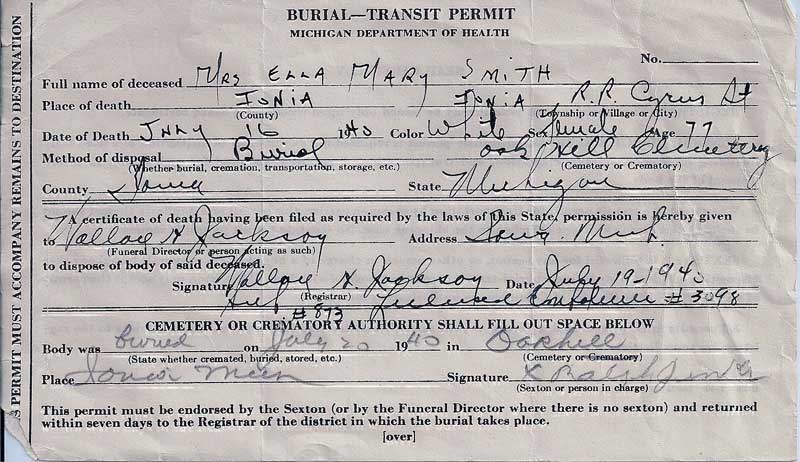 BURIAL—TRANSIT PERMIT
MICHIGAN DEPARTMENT OF HEALTH
No.
Full name of deceased Mrs ELLA MARY SMITH
Place of death IONIA IONIA R.R. Cyrus St
(County) (Township or Village or City)
Date of Death July 16 1940 Color White Sex Female Age 77
Method of disposal Burial oak Hill Cemetery
(Whether burial, cremation, transportation, storage, etc.) (Cemetery or Crematory)
County Ionia State Michigan
A certificate of death having been filed as required by the laws of this State, permission is hereby given
to H. Jackson Address Ionia Mich.
(Funeral Director or person acting as such)
to dispose of body of said deceased.
Signature H. Jackson Date July 19-1940
(Registrar) Licensed # 3098
# 873
CEMETERY OR CREMATORY AUTHORITY SHALL FILL OUT SPACE BELOW
Body was Buried on July 20 1940 in Oakhill
(State whether cremated, buried, stored, etc.) (Cemetery or Crematory)
Place Ionia Mich Signature X Ralph
(Sexton or person in charge)
This permit must be endorsed by the Sexton (or by the Funeral Director where there is no sexton) and returned
within seven days to the Registrar of the district in which the burial takes place.
[over]
S PERMIT MUST ACCOMPANY REMAINS TO DESTINATION